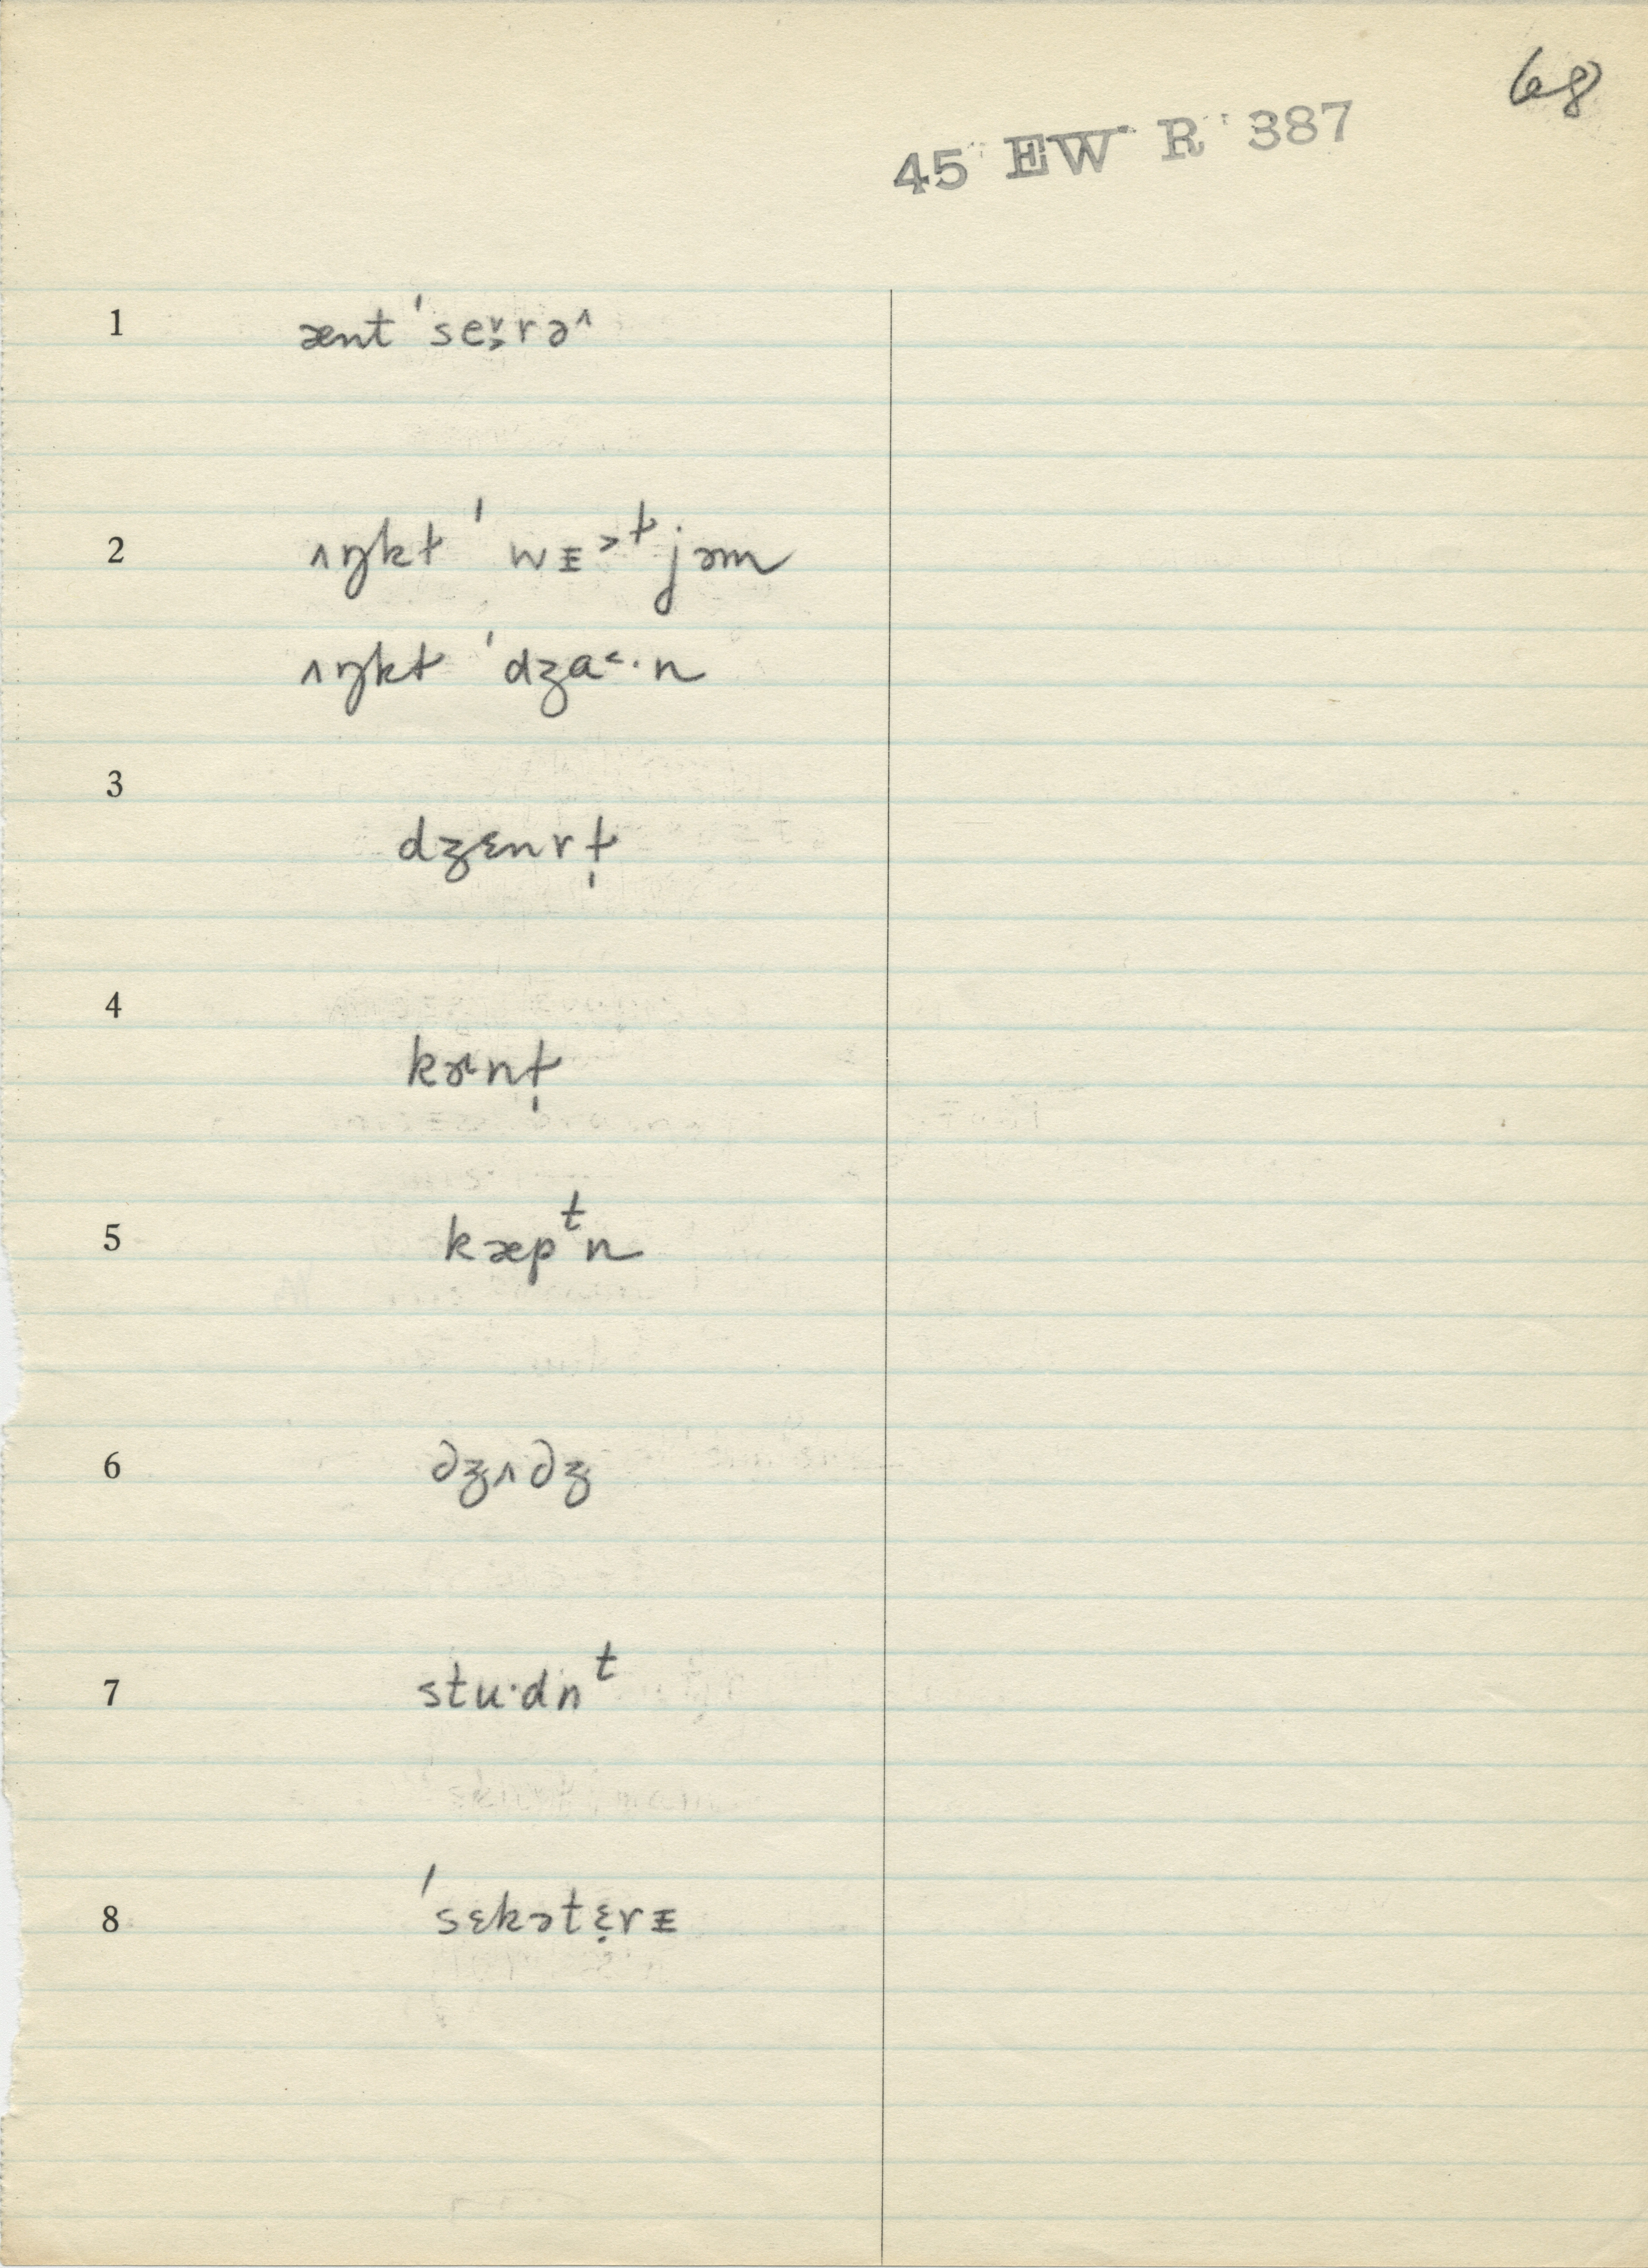 68
45 EW R 387
1 ænt ˈse̬˞rə^
2 ʌŋkɫ ˈwᵻ˃ɫjəm
ʌŋkɫ ˈdʒɑ˂·n
3 dʒɛnrɫ̩
4 kɚnɫ̩
5 kæpᵗn
6 dʒʌdʒ
7 stu·dnᵗ
8 ˈsɛkətɛ̣rᵻ